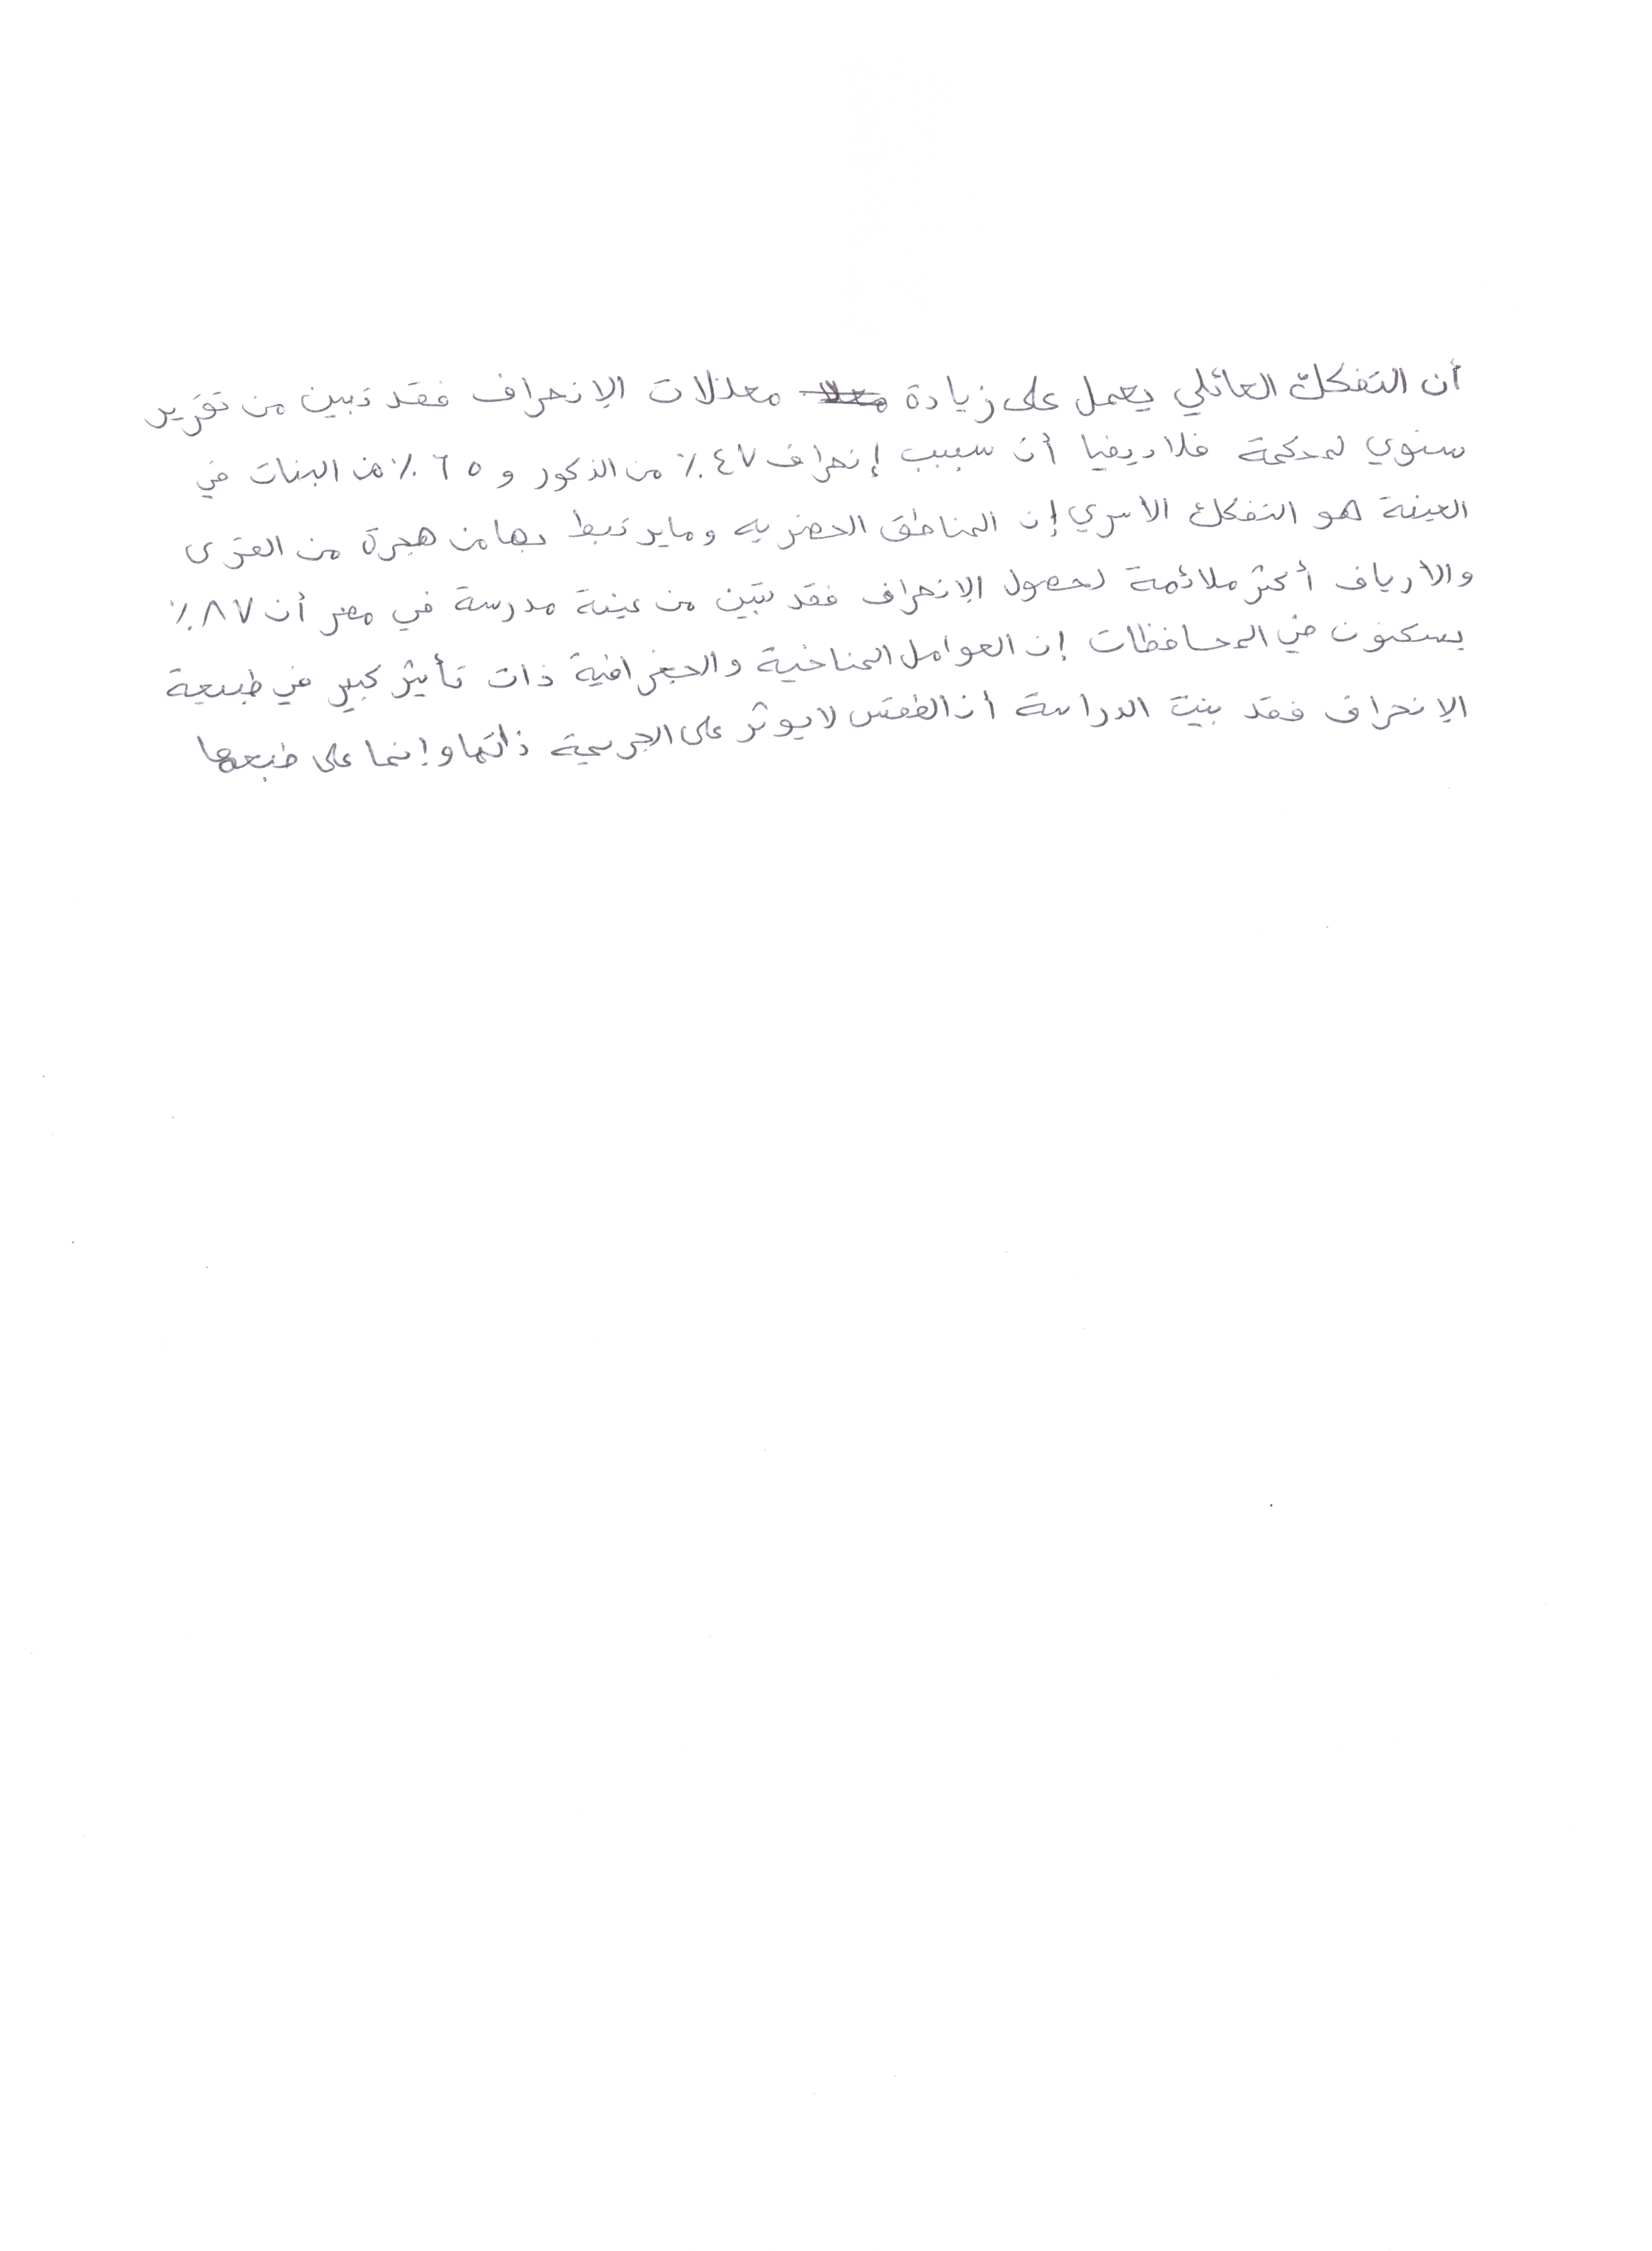 أن التفكك العائلي يعمل على زيادة معدلات الإنحراف فقد تبين من تقرير
سنوي لمحكمة فلاديفيا أن سبب إنحراف ٤٧٪ من الذكور و ٦٥٪ من البنات في
العينة هو التفكك الاسري إن المناطق الحضريه وما يرتبط بها من هجرة من القرى
والارياف أكثر ملائمة لحصول الإنحراف فقد تبين من عينة مدرسة في مصر أن ٨٧٪
يسكنون في المحافظات إن العوامل المناخية والجغرافية ذات تأثير كبير في طبيعة
الإنحراف فقد بينت الدراسة أن الطقس لا يوثر على الجريمة ذاتها وإنما على طبعها